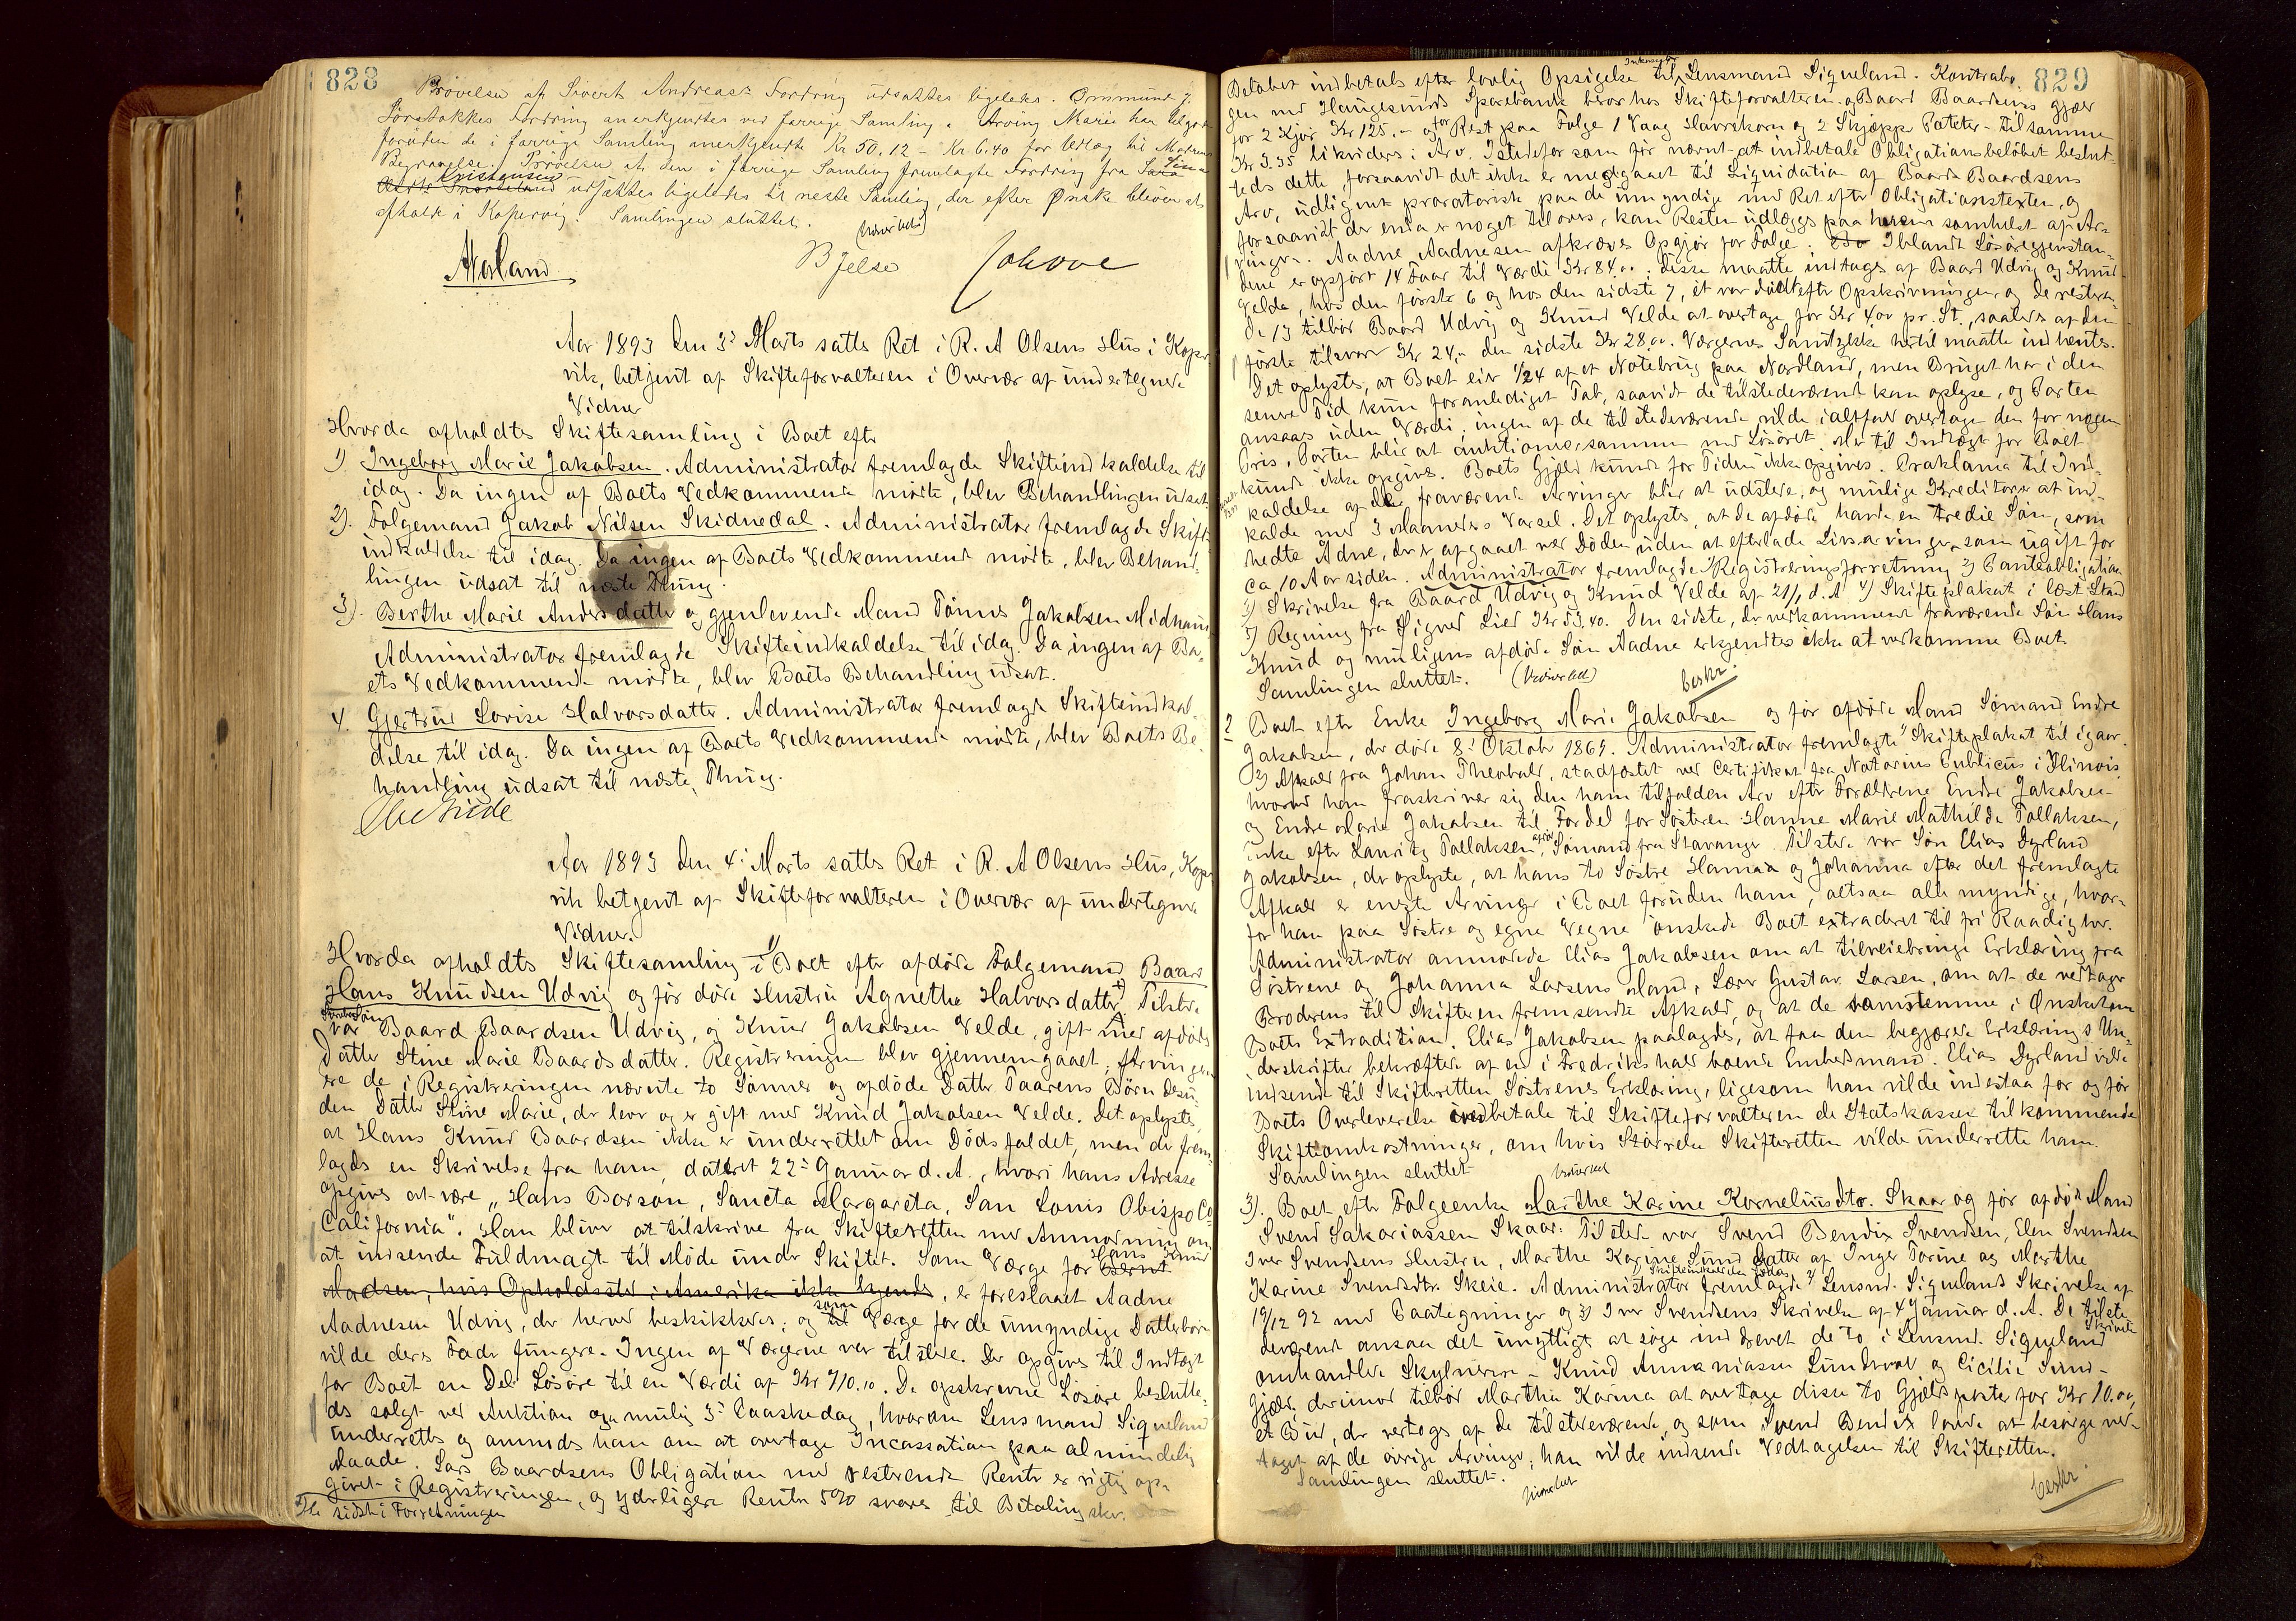 828
Prøvelse af Sivert Andreas's Fordring udsattes ligeledes. Ommund J.
Sørstokkes Fordring anerkjendtes ved forrige Samling. Arving Marie har tilgode
foruden de i forrige Samling anerkjendte Kr 50.12 - Kr 6.40 for Udlæg til Moderens
Begravelse. Prøvelse af den i forrige Samling fremlagte Fordring fra
Kristensen udsættes ligeledes til neste Samling, der efter Ønske bliver at
afholde i Kopervig. Samlingen sluttet.
BJelse
Aar 1893 den 3die Marts sattes Ret i R. A Olsens Hus i Koper
vik, betjent af Skifteforvalteren i Overvær af undertegnede
Vidner
Hvorda afholdtes Skiftesamling i Boet efter
1) Ingeborg Marie Jakobsen. Administrator fremlagde Skifteindkaldelse til
idag. Da ingen af Boets Vedkommende mødte, blev Behandlingen udsat
2). Følgemand Jakob Nilsen Skidnedal. Administrator fremlagde Skifte
indkaldelse til idag. Da ingen af Boets Vedkommende mødte, blev Behand-
lingen udsat til næste Thing.
3). Berthe Marie Andersdatter og gjenlevende Mand Tønnes Jakobsen Midhaug
Administrator fremlagde Skifteindkaldelse til idag. Da ingen af Bo-
ets Vedkommende mødte, blev Boets Behandling udsat.
4. Gjertrud Lovise Halvorsdatter. Administrator fremlagde Skifteindkal-
delse til idag. Da ingen af Boets Vedkommende mødte, blev Boets Be-
handling udsat til næste Thing.
Aar 1893 den 4de Marts sattes Ret i R. A Olsens Hus, Koper
vik betjent af Skifteforvalteren i Overvær af undertegnede
Vidner.
Hvorda afholdtes Skiftesamling i 1) Boet efter afdøde Følgemand Baard
Hans Knudsen Udvig og før døde Hustru Agnethe Halvorsdatter. Tilstede
var Baard Baardsen Udvig, og Knud Jakobsen Velde, gift med afdødes
Datter Stine Marie Baardsdatter. Registreringen blev gjennemgaaet; Arvingerne
ere de i Registreringen nævnte to Sønner og afdøde Datter Taarens Børn desu-
den Datter Stine Marie, der lever og er gift med Knud Jakobsen Velde. Det oplystes,
at Hans Knud Baardsen ikke er underrettet om Dødsfaldet, men der frem-
lagdes en Skrivelse fra ham, dateret 22de Januar d. A., hvori hans Adresse
opgives at være "Hans Borson, Sancta Margareta, San Louis Obispo Co
California". Han bliver at tilskrive fra Skifteretten med Anmodning om
at indsende Fuldmagt til Møde under Skiftet. Som Værge for Hans Knud
Madsen, hvis Opholdssted i Amerika ikke kjendes, er foreslaaet Aadne
Aadnesen Udvig, der herved beskikkedes; og som Værge for de umyndige Datterbørn
vilde deres Fader fungere. Ingen af Værgerne var tilstede. Der opgives til Indtægt
for Boet en Del Løsøre til en Værdi af Kr 710.10. De opskrevne Løsøre beslutte-
des solgt ved Auktion om mulig 3die Paaskedag, hvorom Lensmand Siqueland
underrettes og anmodes han om at overtage Incassation paa almindelig
Maade. Lars Baardsens Obligation med resterende Renter er rigtig op-
givet i Registreringen, og yderligere Renter 5% svares til Betaling sker.
sidst i Forretningen
829
Beløbet indbetales efter lovlig Opsigelse til Lensmand Siqueland. Kontrabo-
gen med Haugesunds Sparebank beror hos Skifteforvalteren og Baard Baardsens gjæld
for 2 Kjør Kr 125.- og for Rest paa Følge 1 Vaag Havrekorn og 2 Skjæpper Poteter - tilsammen
Kr 3.35 likvideres i Arv. Istedetfor som før nævnt at indbetale Obligationsbeløbet beslut-
tedes dette, forsaavidt det ikke er medgaaet til Liquidation af Baard Baardsens
Arv, udlignet proratorisk paa de umyndige med Ret efter Obligationsteksten, og
forsaavidt der enda er noget tilovers, kan Resten udlægges paa hvem somhelst af Ar-
vinger. Aadne Aadnesen afkræves Opgjør for Følge. Iblandt Løsøregjenstan-
dene er opført 14 Faar til Værdi Kr 84.00; disse maatte indtages af Baard Udvig og Knud
Velde, hos den første 6 og hos den sidste 7, et var dødt efter Opskrivningen, og de resteren-
de 13 tilbød Baard Udvig og Knud Velde at overtage for Kr 4,00 pr. St., saaledes af den
første tilsvar Kr 24,- den sidste Kr 28,00. Værgernes Samtykke hertil maatte indhentes.
Det oplystes, at Boet eier 1/24 af et Notebrug paa Nordland, men Bruget har i den
senere Tid kun foranlediget Tab, saavidt de tilstedeværende kan oplyse, og Parten
ansaaes uden Værdi; ingen af de tilstedeværende vilde ialtfald overtage den for nogen
Pris. Parten blir at auktionere sammen med Løsøret. Mer til Indtægt for Boet
kunde ikke opgives. Boets Gjæld kunde for Tiden ikke opgives. Proklama til Ind-
kaldelse af de fraværende Arvinger blir at udstede, og mulige Kreditorer at ind-
kalde med 3 Maaneders Varsel. Det oplystes, at de afdøde havde en tredie Søn, som
hedte Adne, der er afgaaet ved Døden uden at efterlade Livsarvinger, som ugift for
ca 10 Aar siden. Administrator fremlagde 1) Registreringsforretning 2) Panteobligation
3) Skrivelse fra Baard Udvig og Knud Velde af 21/1 d. A 4) Skifteplakat i læst Stand
5) Regning fra Sigved Lied Kr 53,40. Den sidste, der vedkommer fraværende Søn Hans
Knud og muligens afdøde Søn Aadne erkjendtes ikke at vedkomme Boet.
Samlingen sluttet.
beskr.
2 Boet efter Enke Ingeborg Marie Jakobsen og før afdøde Mand Sømand Endre
Jakobsen, der døde 8de Oktober 1869. Administrator fremlagte 1) Skifteplakat til igaar.
2) Afkald fra Johan Theobald, stadfæstet ved Certifikat fra Notarius Publicus i Illinois
hvorved han fraskriver sig den ham tilfalden Arv efter Forældrene Endre Jakobsen
og Endre Marie Jakobsen til Fordel for Søsteren Hanne Marie Mathilde Tollaksen,
Enke efter Lauritz Tollaksen, Sømand fra Stavanger. Tilstede var Søn Elias Dyrland
Jakobsen, der oplyste, at hans to Søstre Hanna og Johanna efter det fremlagte
Afkald er eneste Arvinger i Boet foruden ham, altsaa alle myndige, hvor-
for han paa Søstre og egne Vegne ønskede Boet extraderet til fri Raadighed.
Administrator anmodede Elias Jakobsen om at tilveiebringe Erklæring fra
Søstrene og Johanna Larsens Mand, Lærer Gustav Larsen, om at de vedtager
Broderens til Skifteren fremsendte Afkald, og at de samstemme i Ønsket om
Boets Extradition. Elias Jakobsen paalagdes, at faa den begjærede Erklærings Un-
derskrifter bekræftede af en i Fredrikshald boende Embedsmand. Elias Dyrland vilde
indsende til Skifteretten Søstrenes Erklæring, ligesom han vilde indestaa for og før
Boets Overleverelse indbetale til Skifteforvalteren de Statskassen tilkommende
Skifteomkostninger, om hvis Størrelse Skifteretten vilde underrette ham.
Samlingen sluttet
3). Boet efter Følgeenke Marthe Karine Korneliusdtr. Skaar og før afdøde Mand
Svend Sakariassen Skaar. Tilstede var Svend Bendix Svendsen, Elen Svendsen
Iver Svendsens Hustru, Marthe Karine Sund Datter af Inger Torine og Marthe
Karine Svendsdtr. Skeie. Administrator fremlagde 2) Lensmd. Siquelands Skrivelse af
19/12 92 med Paategninger og 3) Iver Svendsens Skrivelse af 4 Januar d. A. De tilste-
deværende ansaa det unyttigt at søge inddrevet de to i Lensmd. Siqueland Skrivelse
omhandlede Skyldnere - Knud Annaniassen Sundvor og Cicilie Sund -
Gjæld. derimod tilbød Marthe Karina at overtage disse to Gjældsposter for Kr 10.00,
et Bud, der vedtoges af de tilstedeværende, og som Svend Bendix lovede at besørge ved-
taget af de øvrige Arvinge; han vilde indsende Vedtagelsen til Skifteretten.
Samlingen sluttet.
beskr.